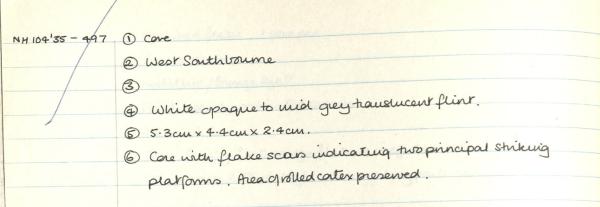 NH 104'35 - 497 ① Core
② West Southbourne
③
④ White opaque to mid grey translucent flint.
⑤ 5.3cm x 4.4cm x 2.4cm.
⑥ Core with flake scars indicating two principal striking
platforms. Area of rolled cortex preserved.